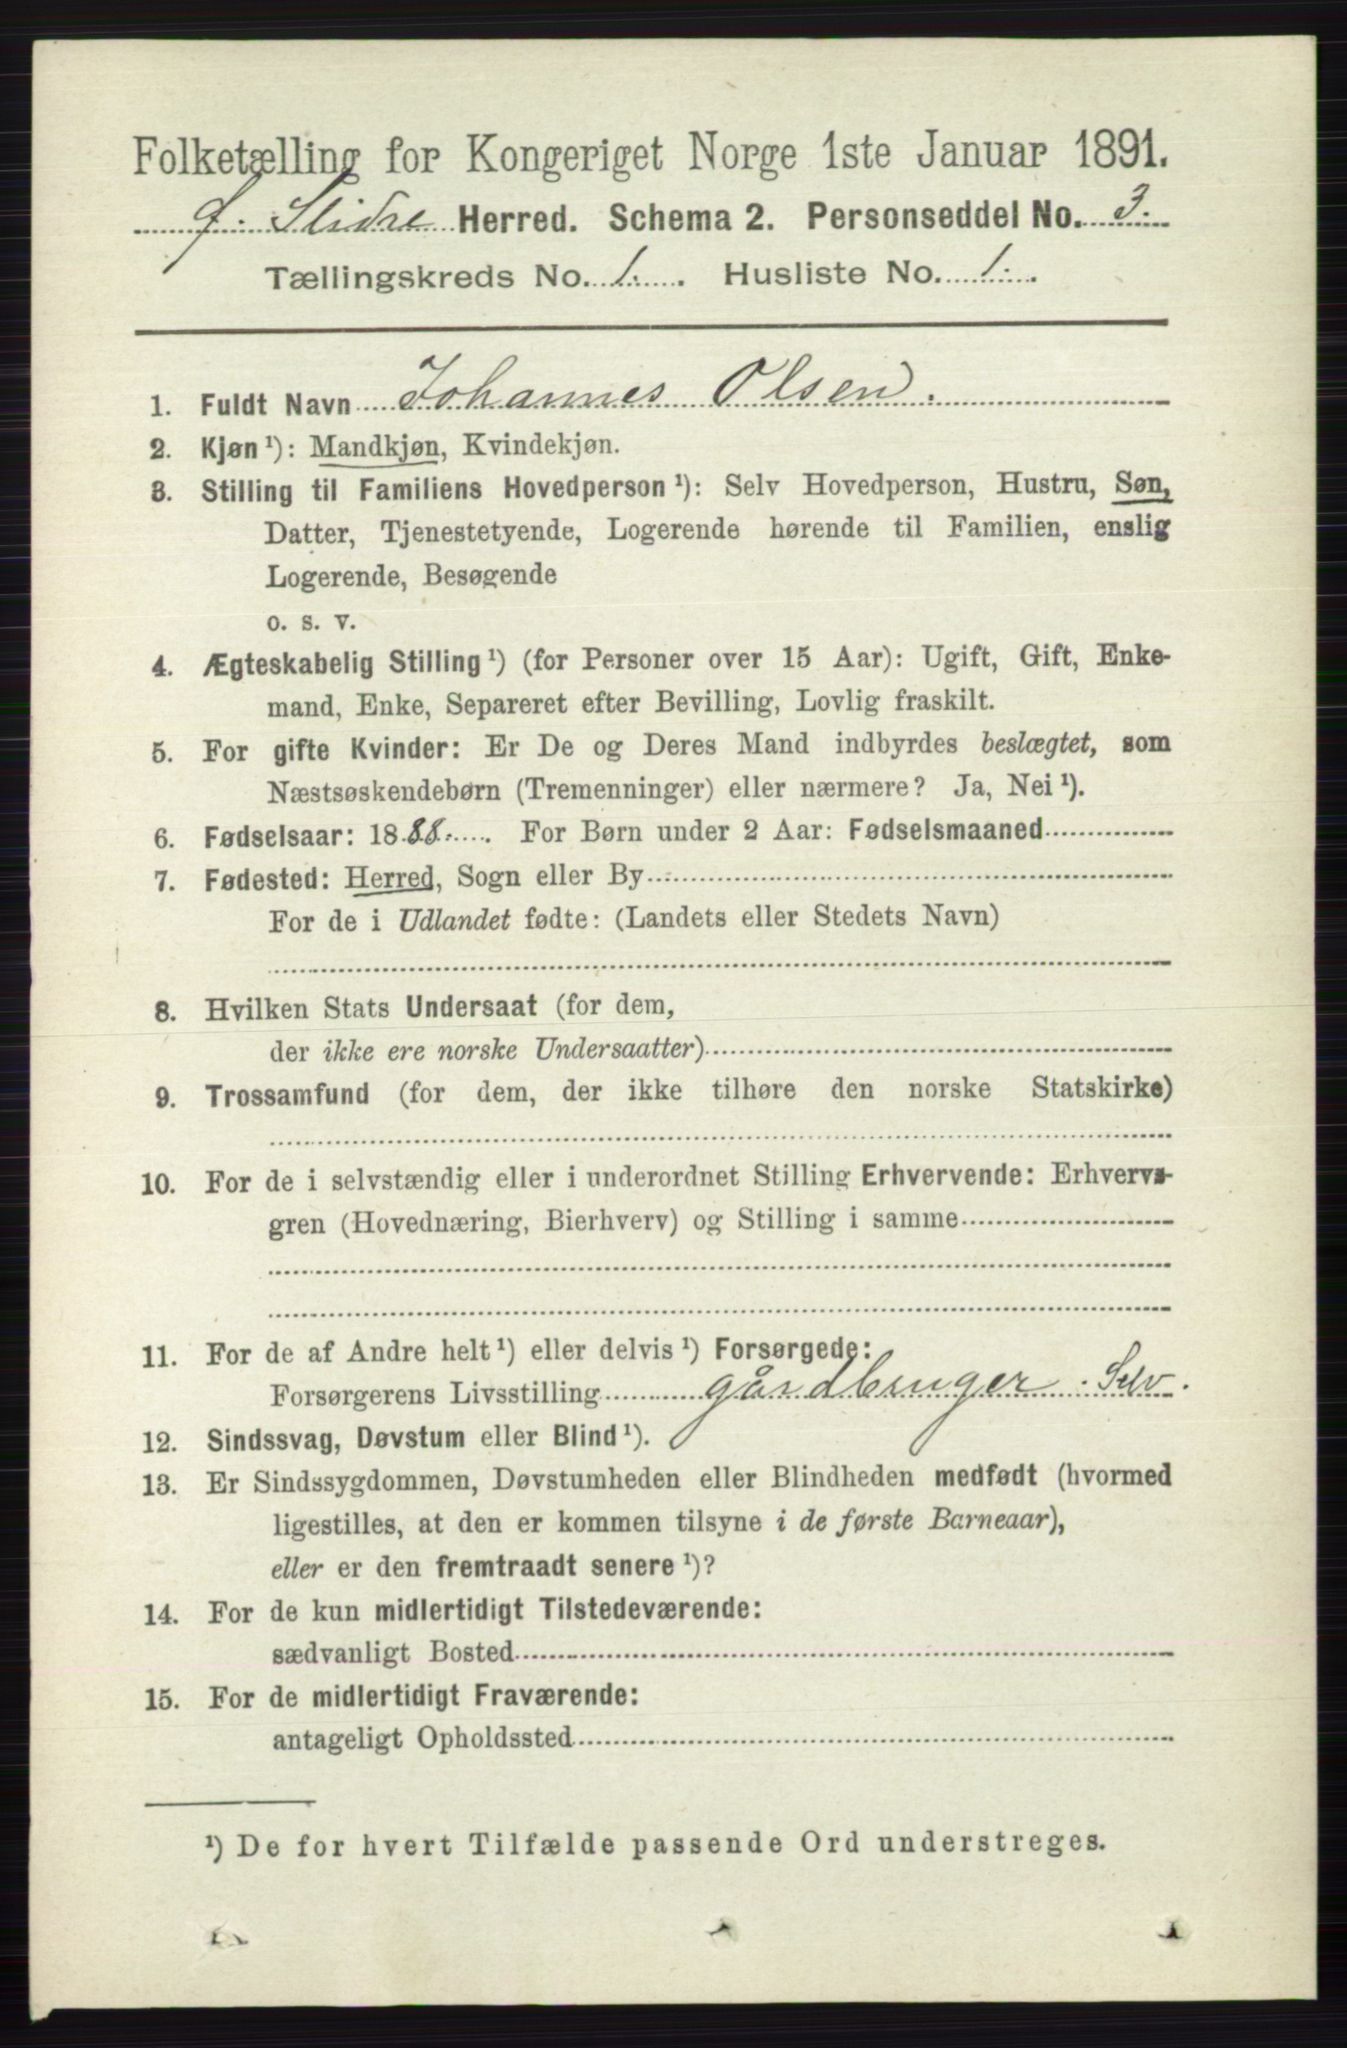 Folketælling for Kongeriget Norge 1ste Januar 1891.
Ø. Slidre Herred. Schema 2. Personseddel No. 3.
Tællingskreds No. 1. Husliste No. 1.
1. Fuldt Navn Johannes Olsen.
2. Kjøn ¹): Mandkjøn, Kvindekjøn.
3. Stilling til Familiens Hovedperson ¹): Selv Hovedperson, Hustru, Søn,
Datter, Tjenestetyende, Logerende hørende til Familien, enslig
Logerende, Besøgende
o. s. v.
4. Ægteskabelig Stilling ¹) (for Personer over 15 Aar): Ugift, Gift, Enke-
mand, Enke, Separeret efter Bevilling, Lovlig fraskilt.
5. For gifte Kvinder: Er De og Deres Mand indbyrdes beslægtet, som
Næstsøskendebørn (Tremenninger) eller nærmere? Ja, Nei ¹).
6. Fødselsaar: 1888. For Børn under 2 Aar: Fødselsmaaned
7. Fødested: Herred, Sogn eller By
For de i Udlandet fødte: (Landets eller Stedets Navn)
8. Hvilken Stats Undersaat (for dem,
der ikke ere norske Undersaatter)
9. Trossamfund (for dem, der ikke tilhøre den norske Statskirke)
10. For de i selvstændig eller i underordnet Stilling Erhvervende: Erhvervs-
gren (Hovednæring, Bierhverv) og Stilling i samme
11. For de af Andre helt ¹) eller delvis ¹) Forsørgede:
Forsørgerens Livsstilling gårdbruger. Selv.
12. Sindssvag, Døvstum eller Blind ¹).
13. Er Sindssygdommen, Døvstumheden eller Blindheden medfødt (hvormed
ligestilles, at den er kommen tilsyne i de første Barneaar),
eller er den fremtraadt senere ¹)?
14. For de kun midlertidigt Tilstedeværende:
sædvanligt Bosted
15. For de midlertidigt Fraværende:
antageligt Opholdssted
¹) De for hvert Tilfælde passende Ord understreges.